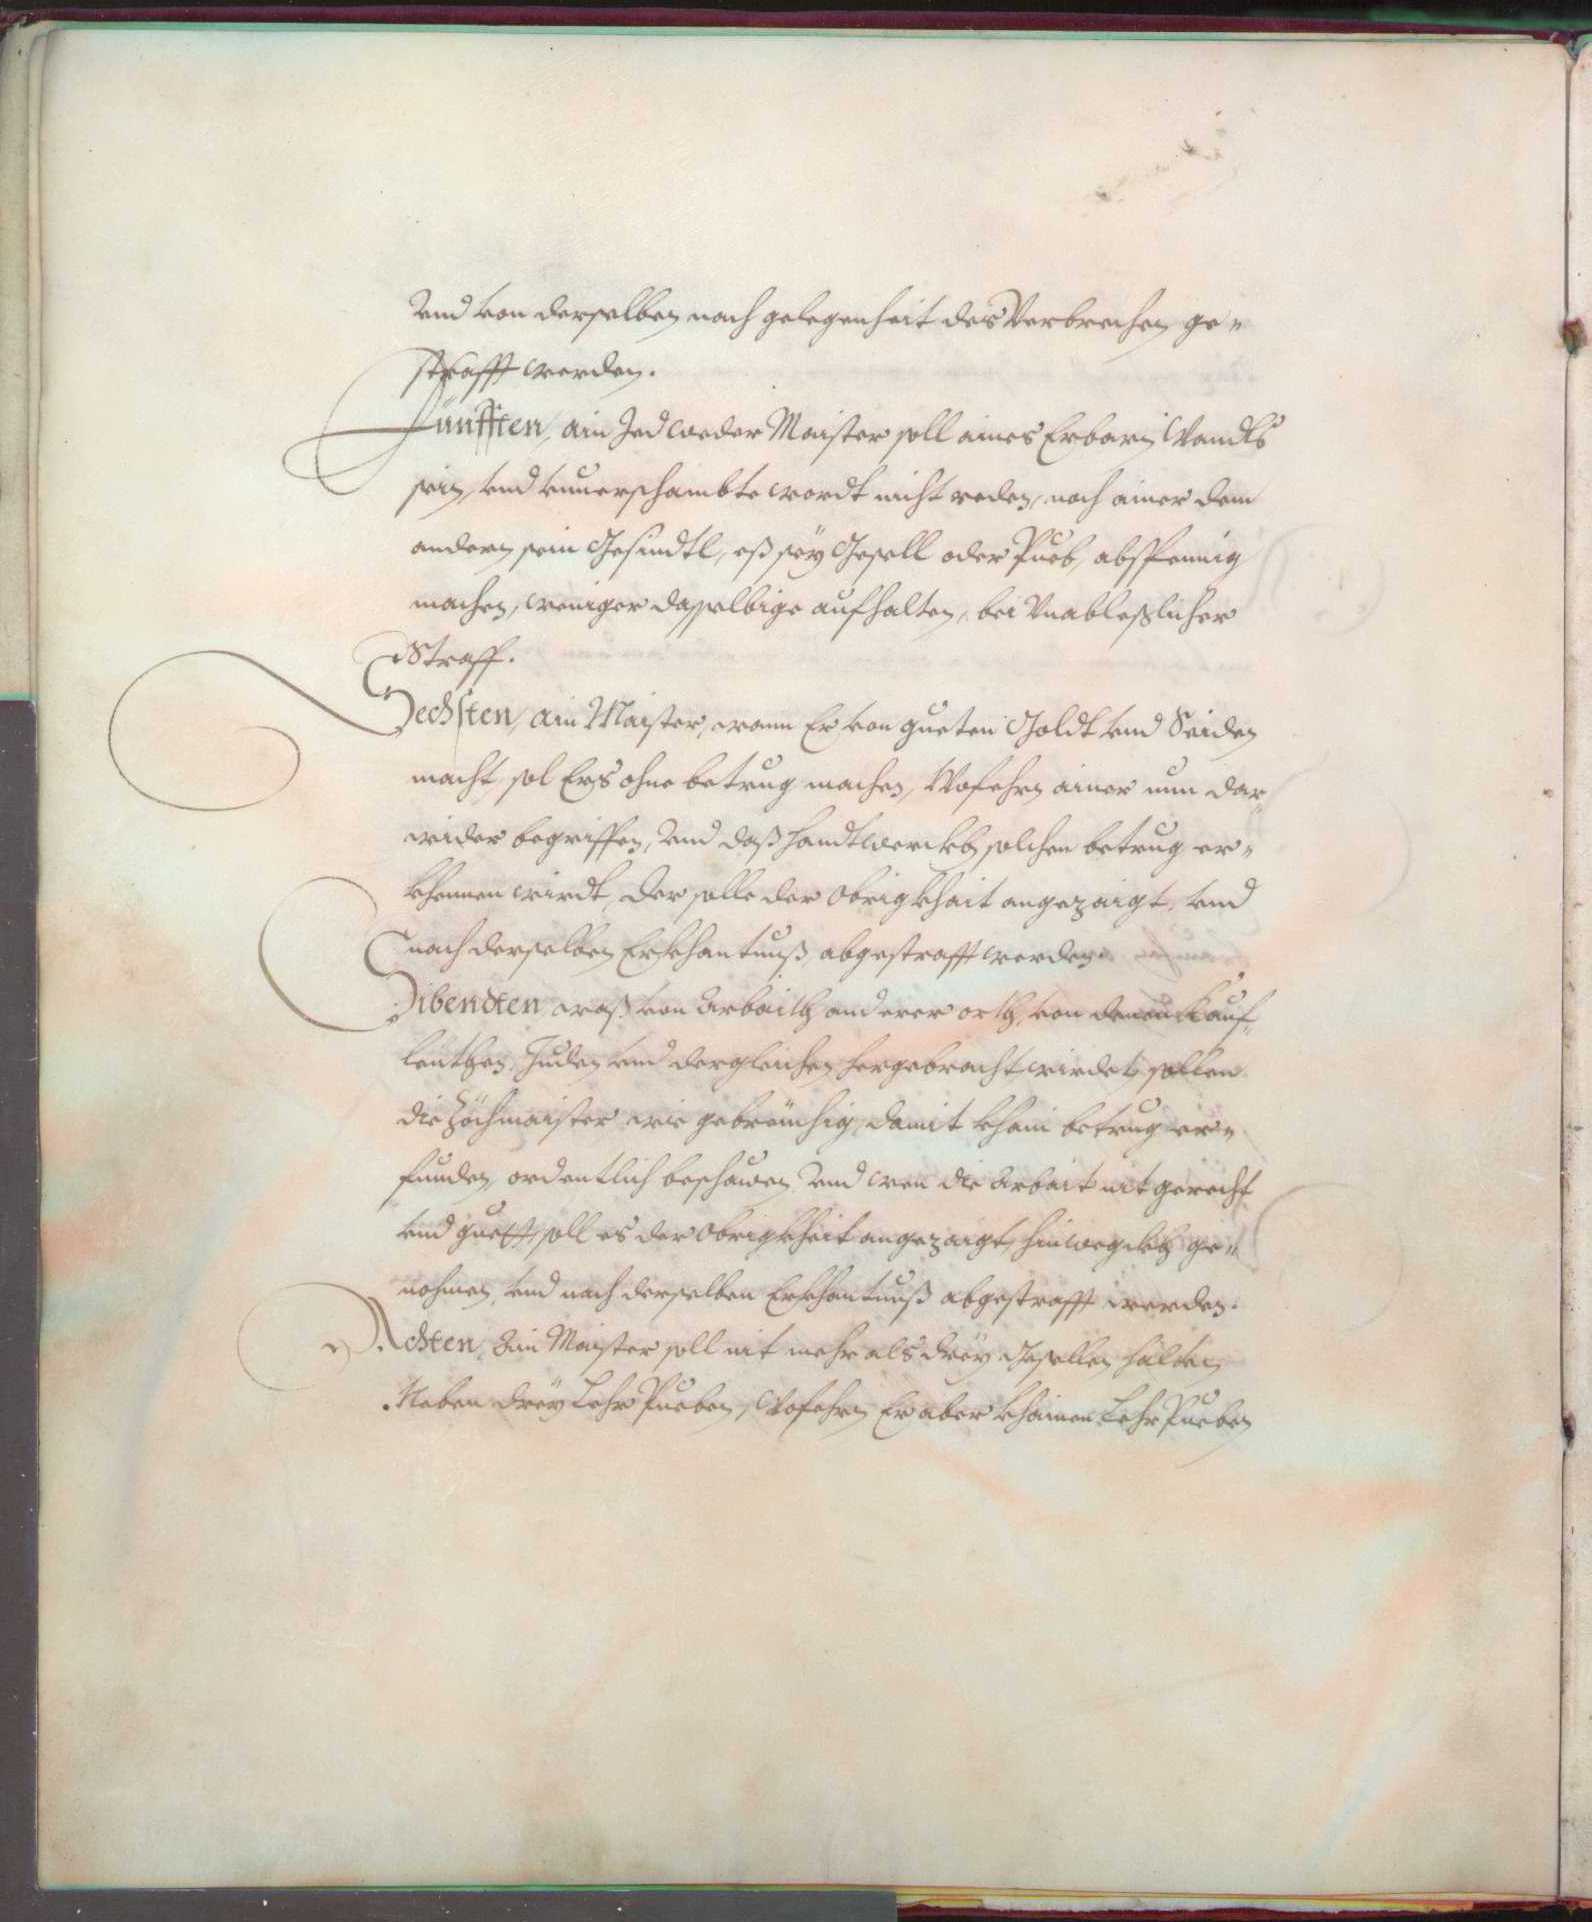 Vnd von derselben nach gelegenheit des Verbrechen ge„
strafft werden.
Fünfften, ain Jedweder Maister soll aines Erbarn Wandls
sein, vnd vnuerschambte wordt nicht reden, noch ainer dem
andern sein Gesindtl, eß seÿ Gesell oder Pueb, abspennig
machen, weniger dasselbige aufhalten, bei Vnableßlicher
Straff.
Sechsten, ain Maister, wann Er von gueten Goldt vnd Seiden
macht, sol Ers ohne betrug machen, Wofehrn ainer nun dar„
wider begriffen, Vnd daß handtwerckh solchen betrug er„
khennen wirdt, der solle der Obrigkhait angezaigt, vnd
nach derselben Erkhantnuß abgestrafft werden.
Sibendten, waß von Arbaith anderer orth, von denen Kauf„
leuthen, Juden vnd dergleichen hergebracht wirdet, sollen
die Zöchmaister wie gebreuchig, damit khain betrug er„
funden, ordentlich beschawen, Vnd wen die Arbait nit gerecht
vnd guett, soll es der Obrigkheit angezaigt, hinwegkh ge„
nohmen, vnd nach derselben Erkhantnuß abgestrafft werden.
Achten, Ain Maister soll nit mehr als dreÿ Gesellen halten,
Neben dreÿ Lehr Pueben, Wofehrn Er aber khainen Lehr Pueben